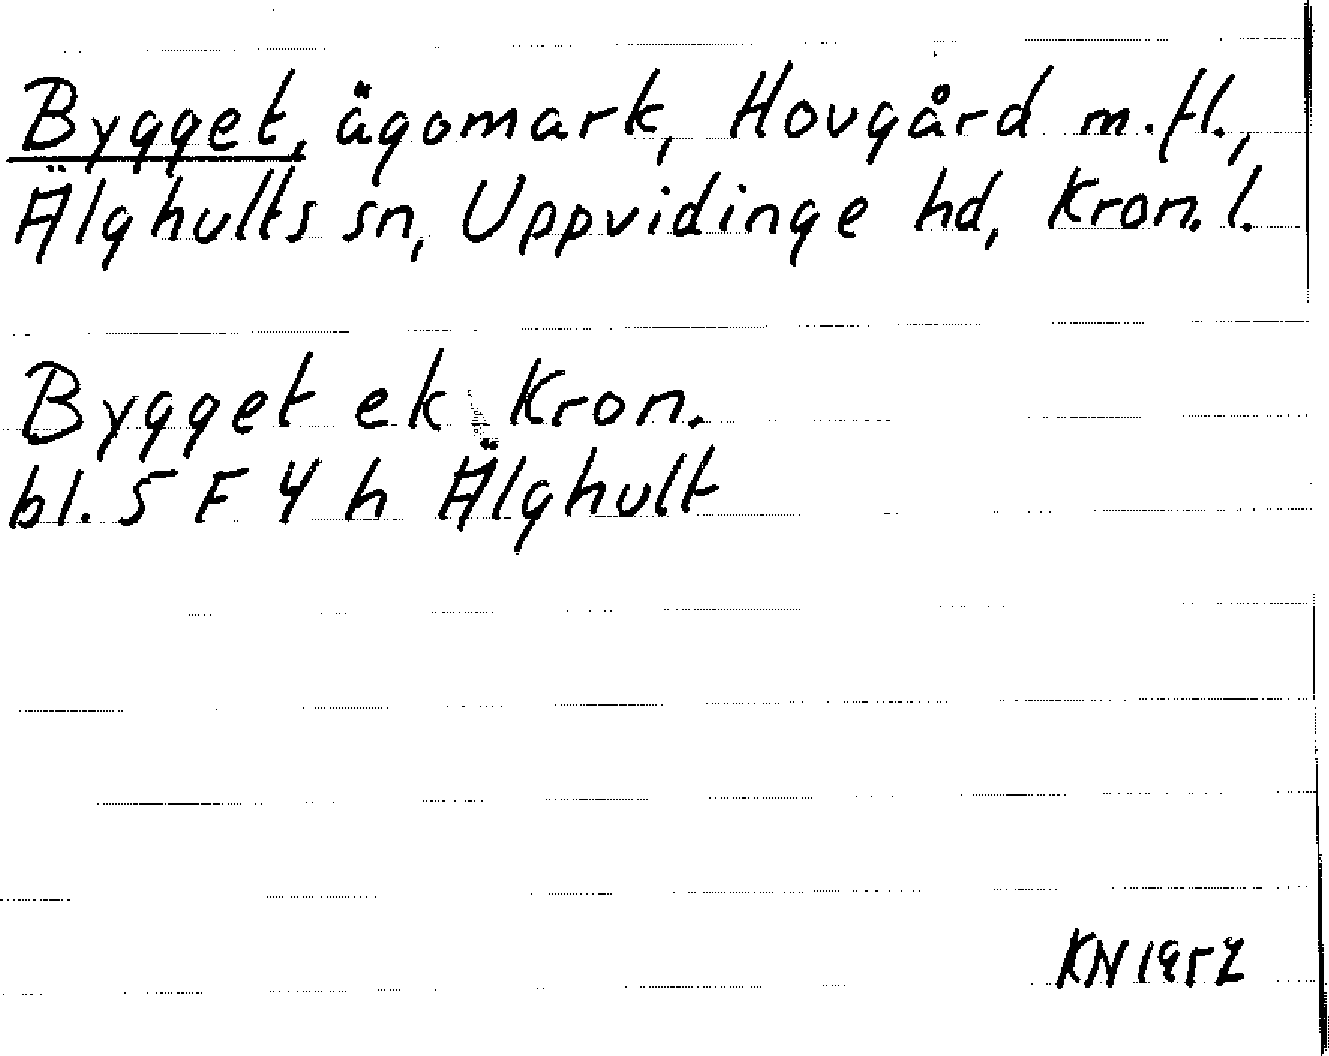 Bygget, ägomark, Hovgård m.fl.,
Älghults sn, Uppvidinge hd, Kron. l.
Bygget ek Kron.
bl. 5 F 4 h Älghult
KN 1952